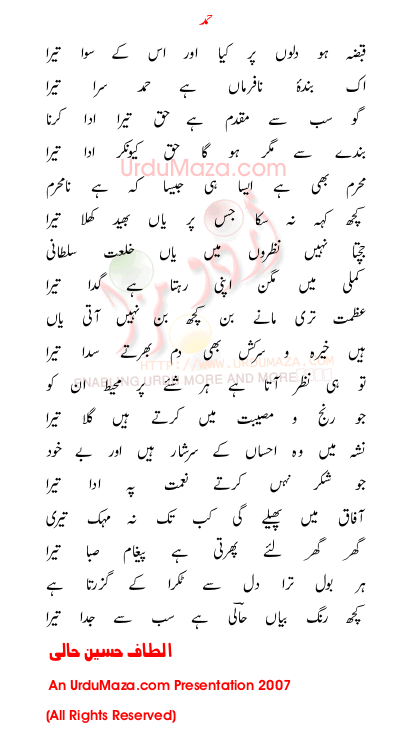 حمد
قبضہ ہو دلوں پر کیا اور اس کے سوا تیرا
اک بندۂ نافرماں ہے حمد سرا تیرا
گو سب سے مقدم ہے حق تیرا ادا کرنا
بندے سے مگر ہو گا حق کیونکر ادا تیرا
محرم بھی ہے ایسا ہی جیسا کہ ہے نامحرم
کچھ کہہ نہ سکا جس پر یاں بھید کھلا تیرا
جچتا نہیں نظروں میں یاں خلعت سلطانی
کملی میں مگن اپنی رہتا ہے گدا تیرا
عظمت تری مانے بن کچھ بن نہیں آتی یاں
ہیں خیرہ و سرکش بھی دم بھرتے سدا تیرا
تو ہی نظر آتا ہے ہر شئے پر محیط ان کو
جو رنج و مصیبت میں کرتے ہیں گلا تیرا
نشہ میں وہ احساں کے سرشار ہیں اور بے خود
جو شکر نہیں کرتے نعمت پہ ادا تیرا
آفاق میں پھیلے گی کب تک نہ مہک تیری
گھر گھر لئے پھرتی ہے پیغام صبا تیرا
ہر بول ترا دل سے ٹکرا کے گزرتا ہے
کچھ رنگ بیاں حالؔی ہے سب سے جدا تیرا
الطاف حسین حالی
An UrduMaza.com Presentation 2007
(All Rights Reserved)
UrduMaza.com
اردو مزا
HTTP://WWW.URDUMAZA.COM
ENABLING URDU MORE AND MORE